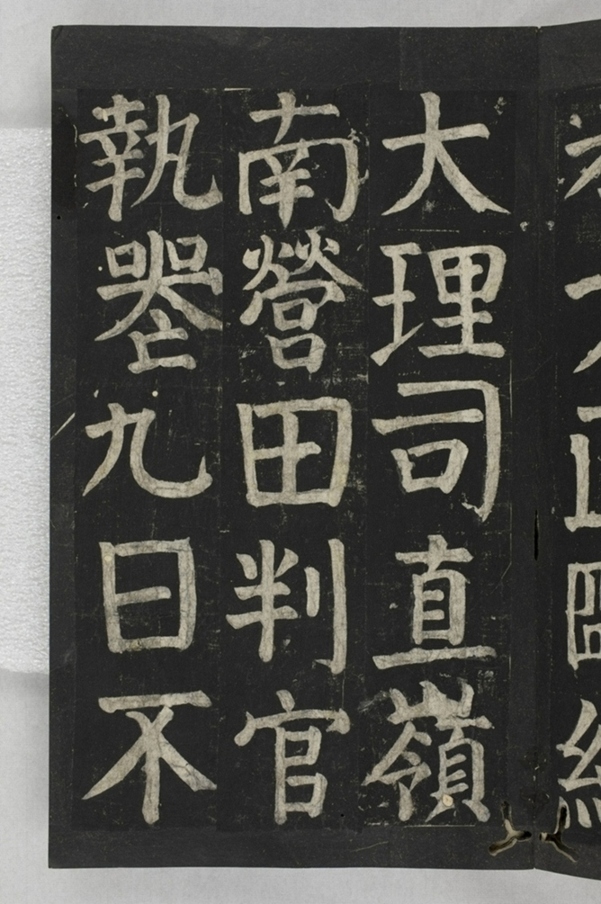 大理司直嶺
南營田判官
執喪九日不